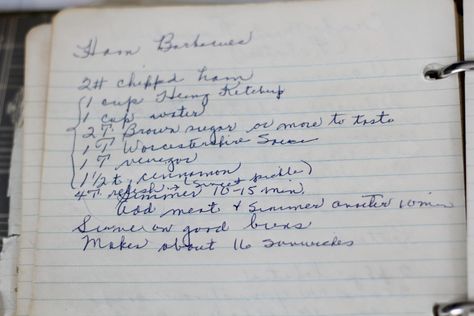 Ham Barbecues
2# chipped ham
1 cup Heinz Ketchup
1 cup water
2 T Brown sugar or more to taste
1 T Worcestershire Sauce
1 T vinegar
1 1/2 t. cinnamon
4 T relish → (sweet pickle)
Simmer 10-15 min
Add meat & simmer another 10 min
Serve on good buns
Makes about 16 sandwiches